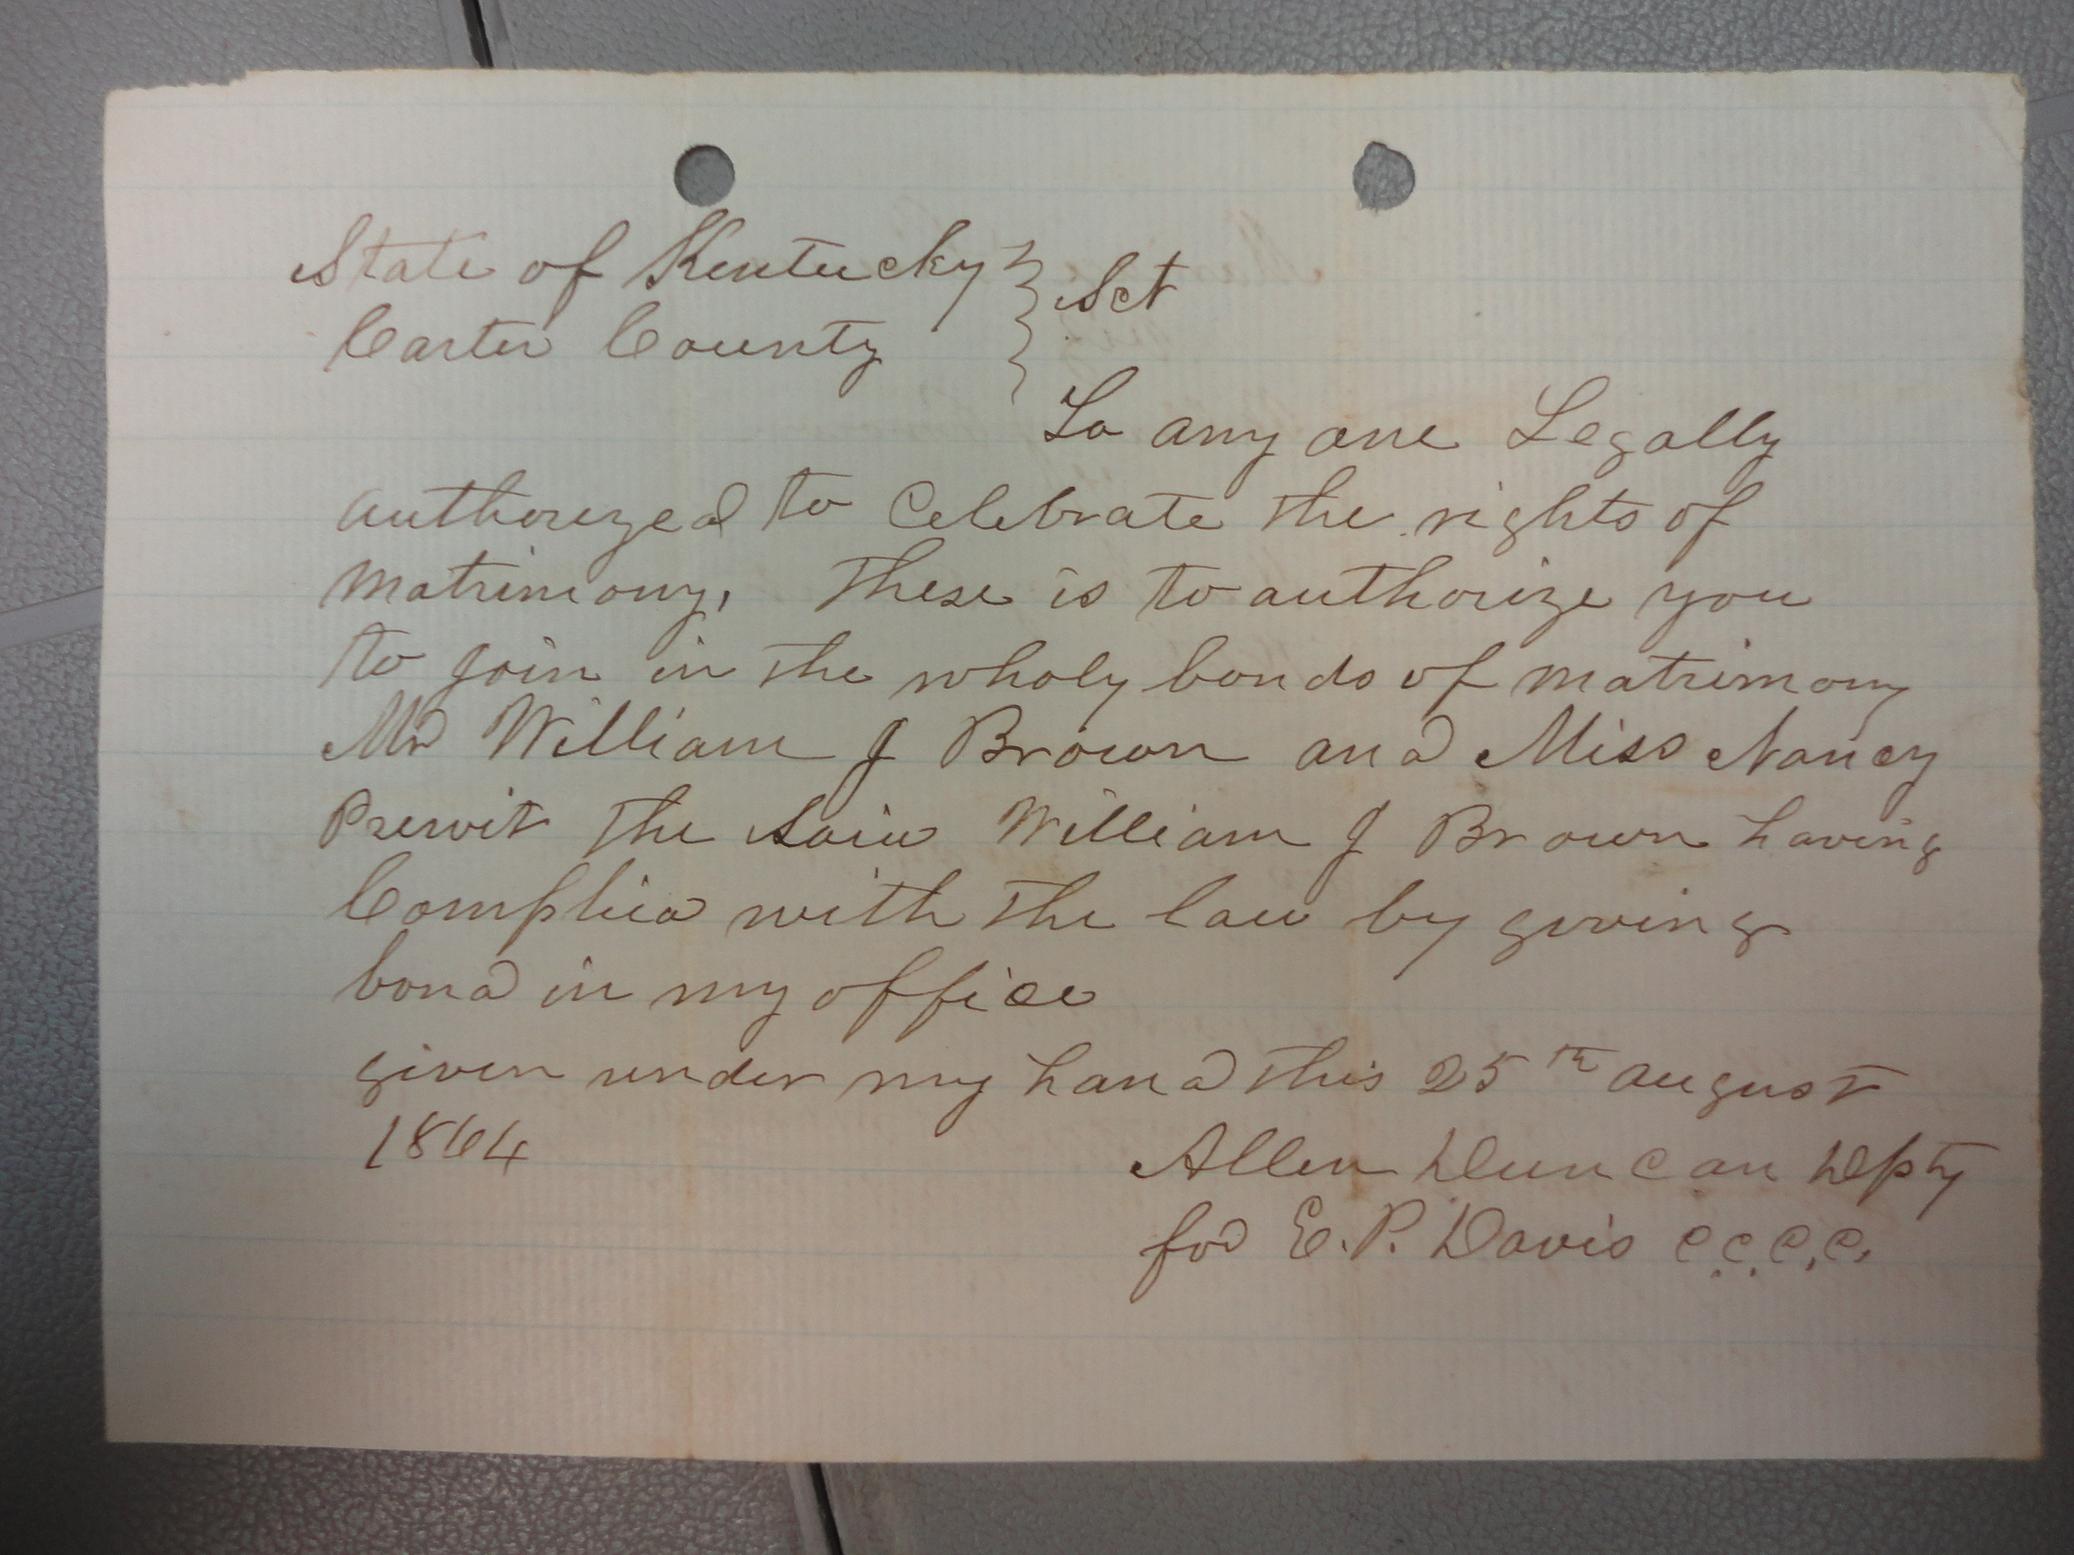 State of Kentucky } Sct
Carter County
To any one Legally
authorized to Celebrate the rights of
matrimony, These is to authorize you
to join in the wholy bonds of matrimony
Mr William J Brown and Miss Nancy
Prewit the Said William J Brown having
Complied with the law by giving
bond in my office
given under my hand this 25th august
1864
Allen Duncan Dpty
for E. P. Davis C.C.C.C.